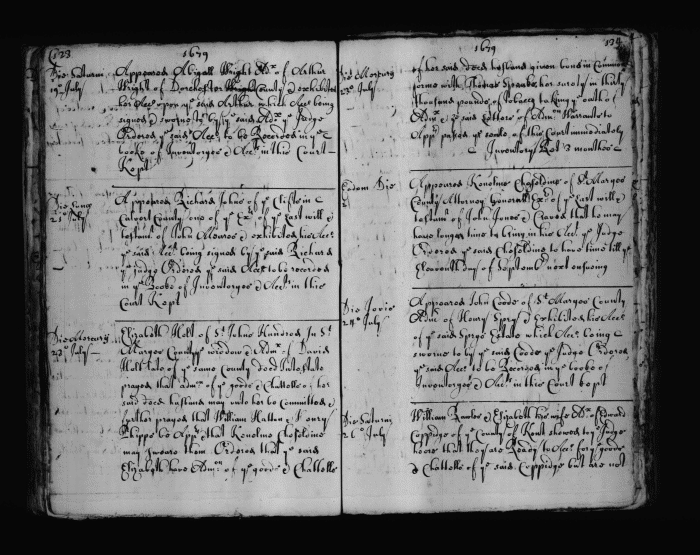 123
1679
Die Saturni
19o July
Appeared Abigall Wright Admx of Arthur
Wright of Dorchester County & exhibited
her Acct upon ye said Arthur which Acct being
signed & sworne to by ye said Admx ye Judge
Ordered ye said Acct to be Recorded in ye
booke of Inventoryes & Acct in this Court
Kept
Die Lune
21o July
Appeared Richard Johns of ye Clifts in
Calvert County one of ye Exrs of ye Last will &
testamt of John & exhibited his Acct
ye said Acct being signed by ye said Richard
ye Judge Ordered ye said Acct to be recorded
in ye Booke of Inventoryes & Acct in this
Court Kept
Die Mercurij
23o July
Elizabeth Holt of St Johns Hundred In St
Maryes County widdow & Admx of David
Holt late of ye same County decd Intestate
prayed that admn of ye goods & Chattells of her
said decd husband may unto her be Committed &
further prayed that William Hatton & Henry
Phipps be Appd that Kenelme Cheseldine
may sweare them Ordered that ye said
Elizabeth have Admn of ye goods & Chattells
1679
Die Mercurij
23o July
of her said decd husband given bond in Common
forme with Thomas her surety in thirty
thousand pounds of tobacco taking ye oath of
Admx & ye said Letters of Admn Warrante to
Appr passed ye seale of this Court immediately
Inventory Ret 3 months
Eodem Die
Appeared Kenelme Cheseldine of St Maryes
County Attorney Generall Exr of ye Last will &
testamt of John Jones & Craved that he may
have longer time to bring in his Acct ye Judge
Ordered ye said Cheseldine to have time till ye
Eleaventh day of Septembr next ensueing
Die Jovis
24o July
Appeared John Coode of St Maryes County
Admr of Henry Spry & Exhibited his Acct
of ye said Sprys Estate which Acct being
sworne to by ye said Coode ye Judge Ordered
ye said Acct to be Recorded in ye booke of
Inventoryes & Acct in this Court kept
Die Saturni
26o July
William & Elizabeth his wife Admx of Edward
Coppidge of ye County of Kent shewed ye Judge
here that they are Ready to Acct for ye goods
& Chattells of ye said Coppidge but are not